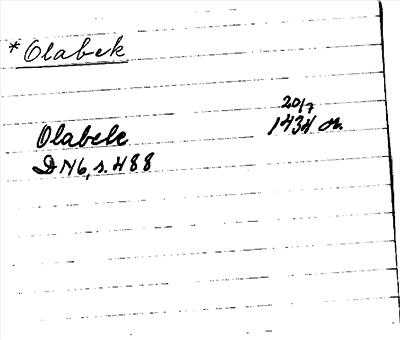 *Olabek
20/7
Olabek 1434 or.
DN6, s. 488